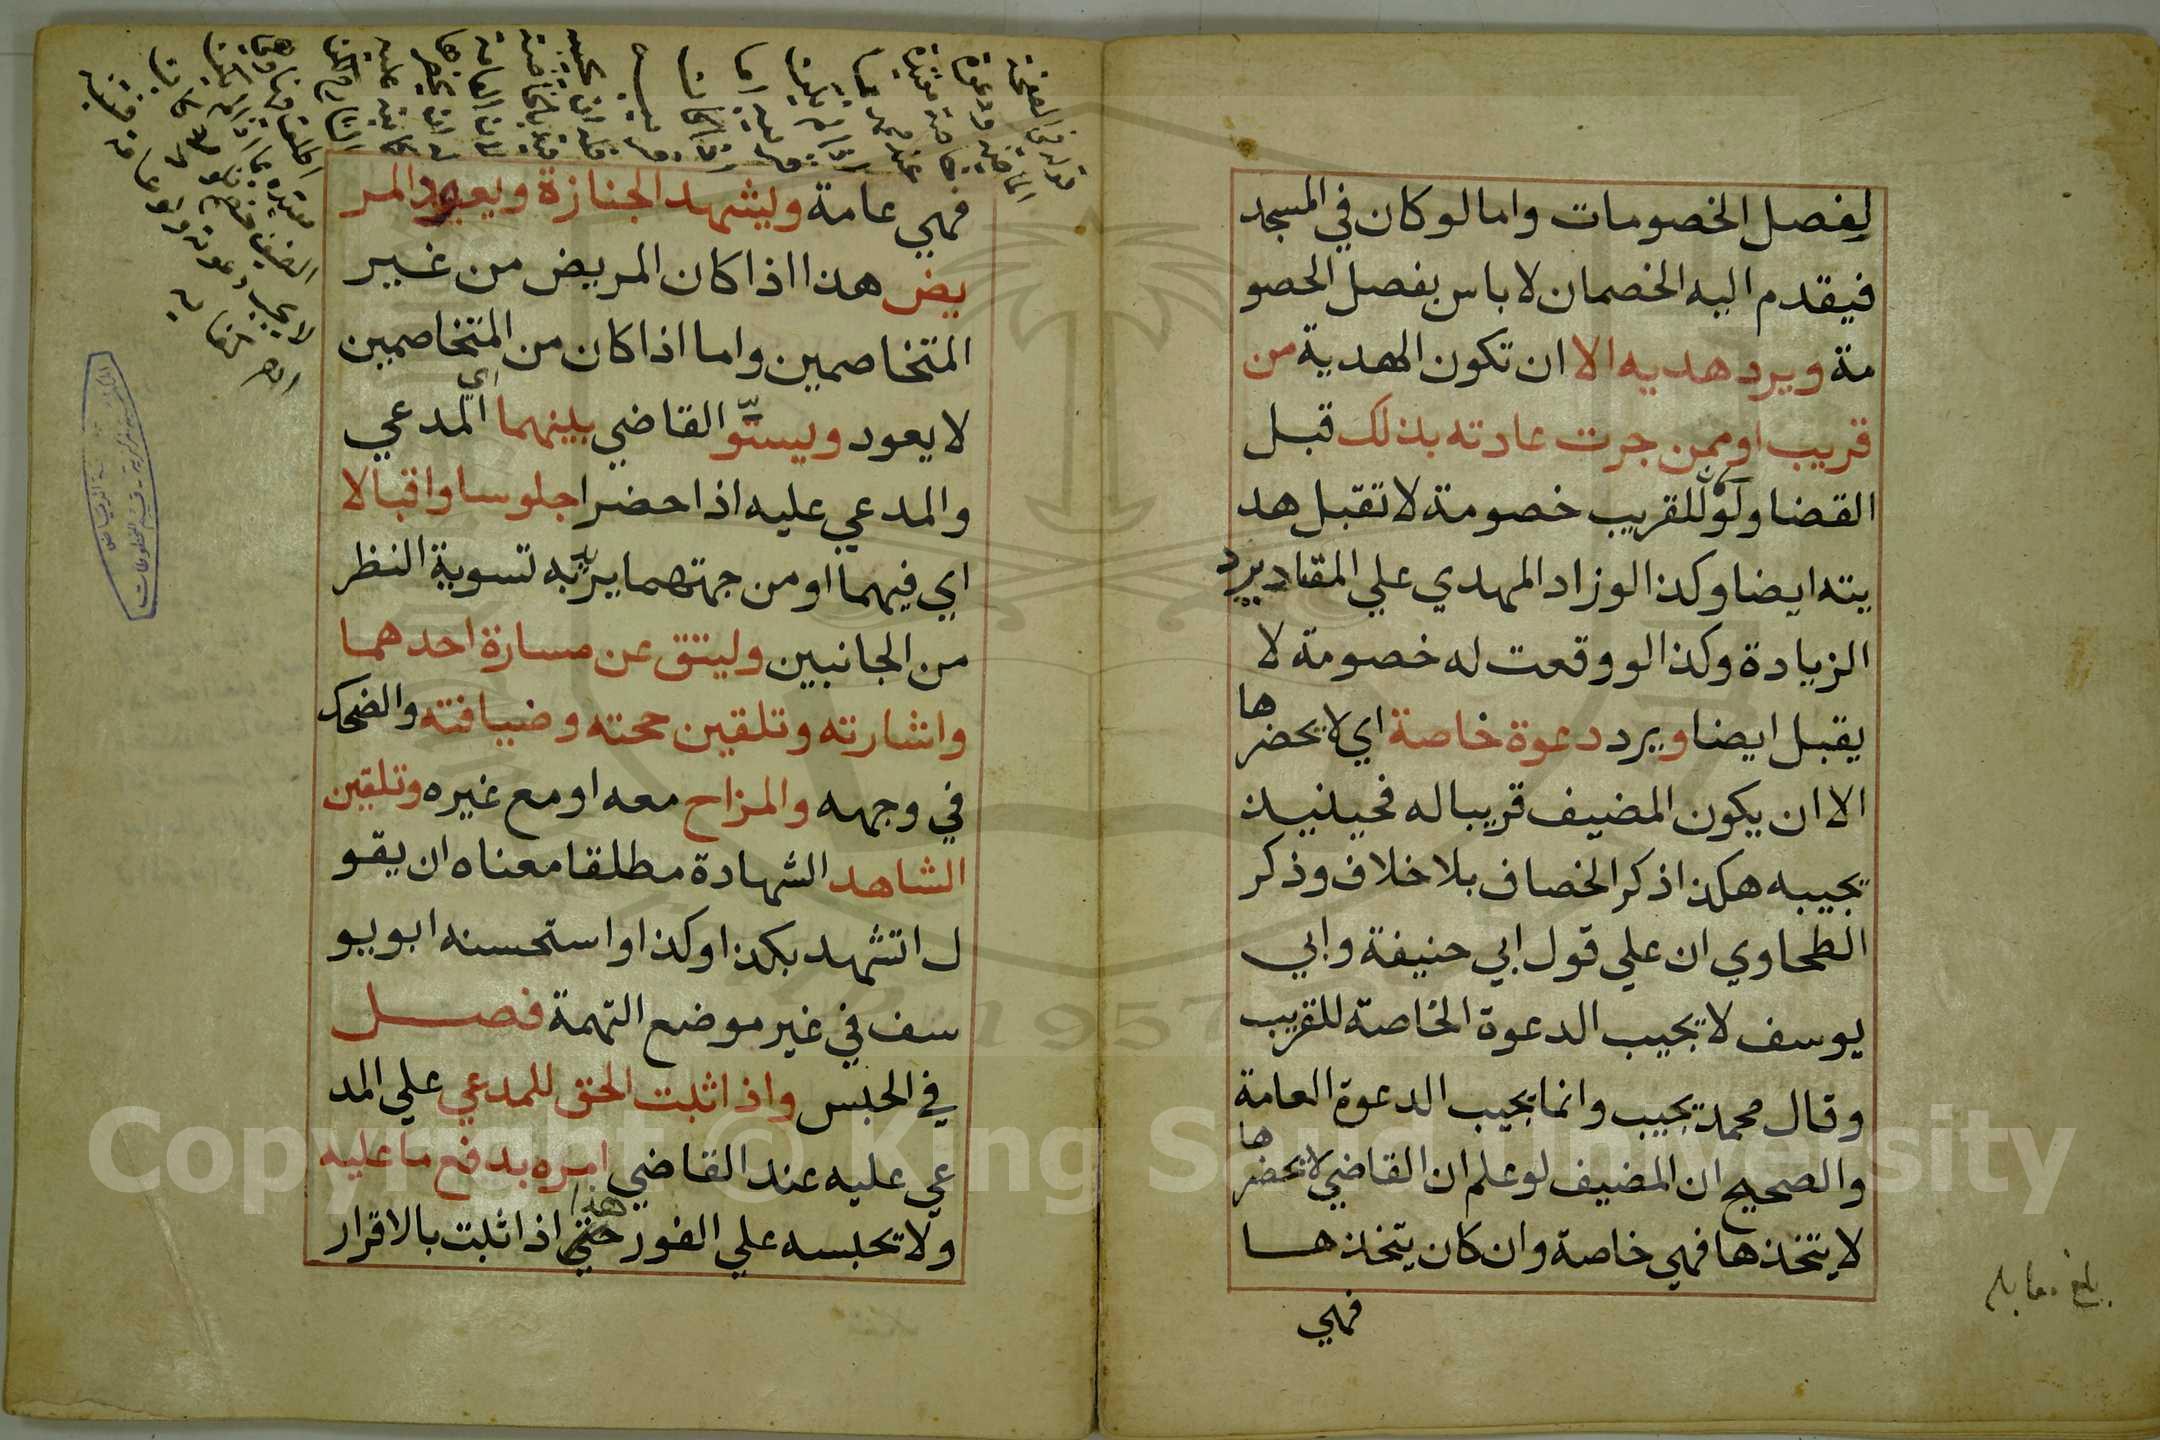 لفصل الخصومات واما لو كان في المسجد
فيقدم اليه الخصمان لا باس بفصل الخصو
مة ويرد هديه الا ان تكون الهدية من
قريب او ممن جرت عادته بذلك قبل
القضا ولو كان للقريب خصومة لا تقبل هد
يته ايضا وكذا لو زاد المهدي علي المقتاد يرد
الزيادة وكذا لو وقعت له خصومة لا
يقبل ايضا ويرد دعوة خاصة اي لا يحضرها
الا ان يكون المضيف قريبا له فحينيذ
يجيبه هكذا ذكر الخصاف بلا خلاف وذكر
الطحاوي ان علي قول ابي حنيفة وابي
يوسف لا يجيب الدعوة الخاصة للقريب
وقال محمد يجيب وانما يجيب الدعوة العامة
والصحيح ان المضيف لو علم ان القاضي لا يحضرها
لا يتخذها فهي خاصة وان كان يتخذها
فهي
بلغ مقابلة
فهي عامة وليشهد الجنازة ويعود المر
يض هذا اذا كان المريض من غير
المتخاصمين واما اذا كان من المتخاصمين
لا يعود وليسّو القاضي بينهما اي المدعي
والمدعي عليه اذا حضرا جلوسا واقبالا
اي فيهما او من جهتهما يريد به تسوية النظر
من الجانبين وليتق عن مسارة احدهما
واشارته وتلقين حجته وضيافته والضحك
في وجهه والمزاح معه او مع غيره وتلقين
الشاهد الشهادة مطلقا معناه ان يقو
ل اتشهد بكذا وكذا واستحسنه ابو يو
سف في غير موضع التهمة فصل
في الحبس واذا ثبت الحق للمدعي علي المد
عي عليه عند القاضي امره بدفع ما عليه
ولا يحبسه علي الفور هذا اذا ثبت بالاقرار
Copyright © King Saud University
1957